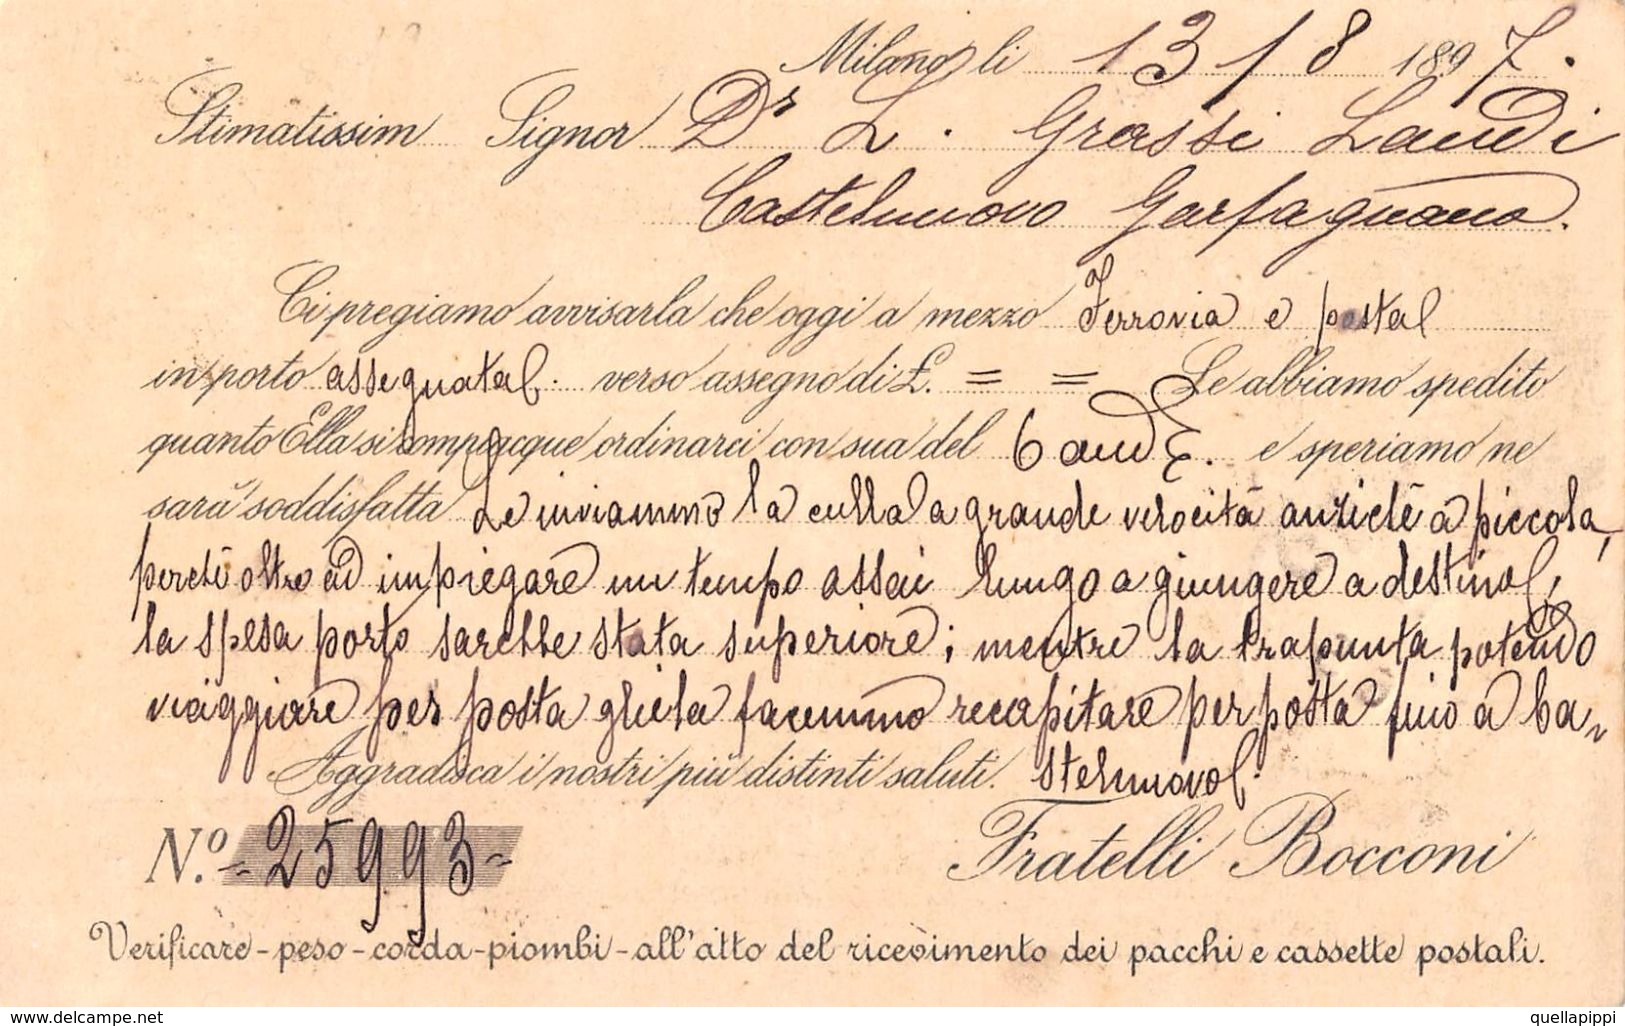 Milano, li 13/8 1897.
Stimatissim Signor Dr L. Grassi Landi
Castelnuovo Garfagnana.
Ci pregiamo avvisarla che oggi a mezzo Ferrovia e postal
in porto assegnato. verso assegno di £. = = Le abbiamo spedito
quanto Ella si compiacque ordinarci con sua del 6 and. e speriamo ne
sarà soddisfatta Le inviammo la culla a grande velocità anziché a piccola,
perché oltre ad impiegare un tempo assai lungo a giungere a destino,
la spesa porto sarebbe stata superiore; mentre la trapunta potendo
viaggiare per posta gliela facemmo recapitare per posta fino a Ca-
Aggradisca i nostri più distinti saluti. stelnuovo.
N.º = 25993 =
Fratelli Bocconi
Verificare-peso-corda-piombi-all'atto del ricevimento dei pacchi e cassette postali.
www.delcampe.net
quellapippi